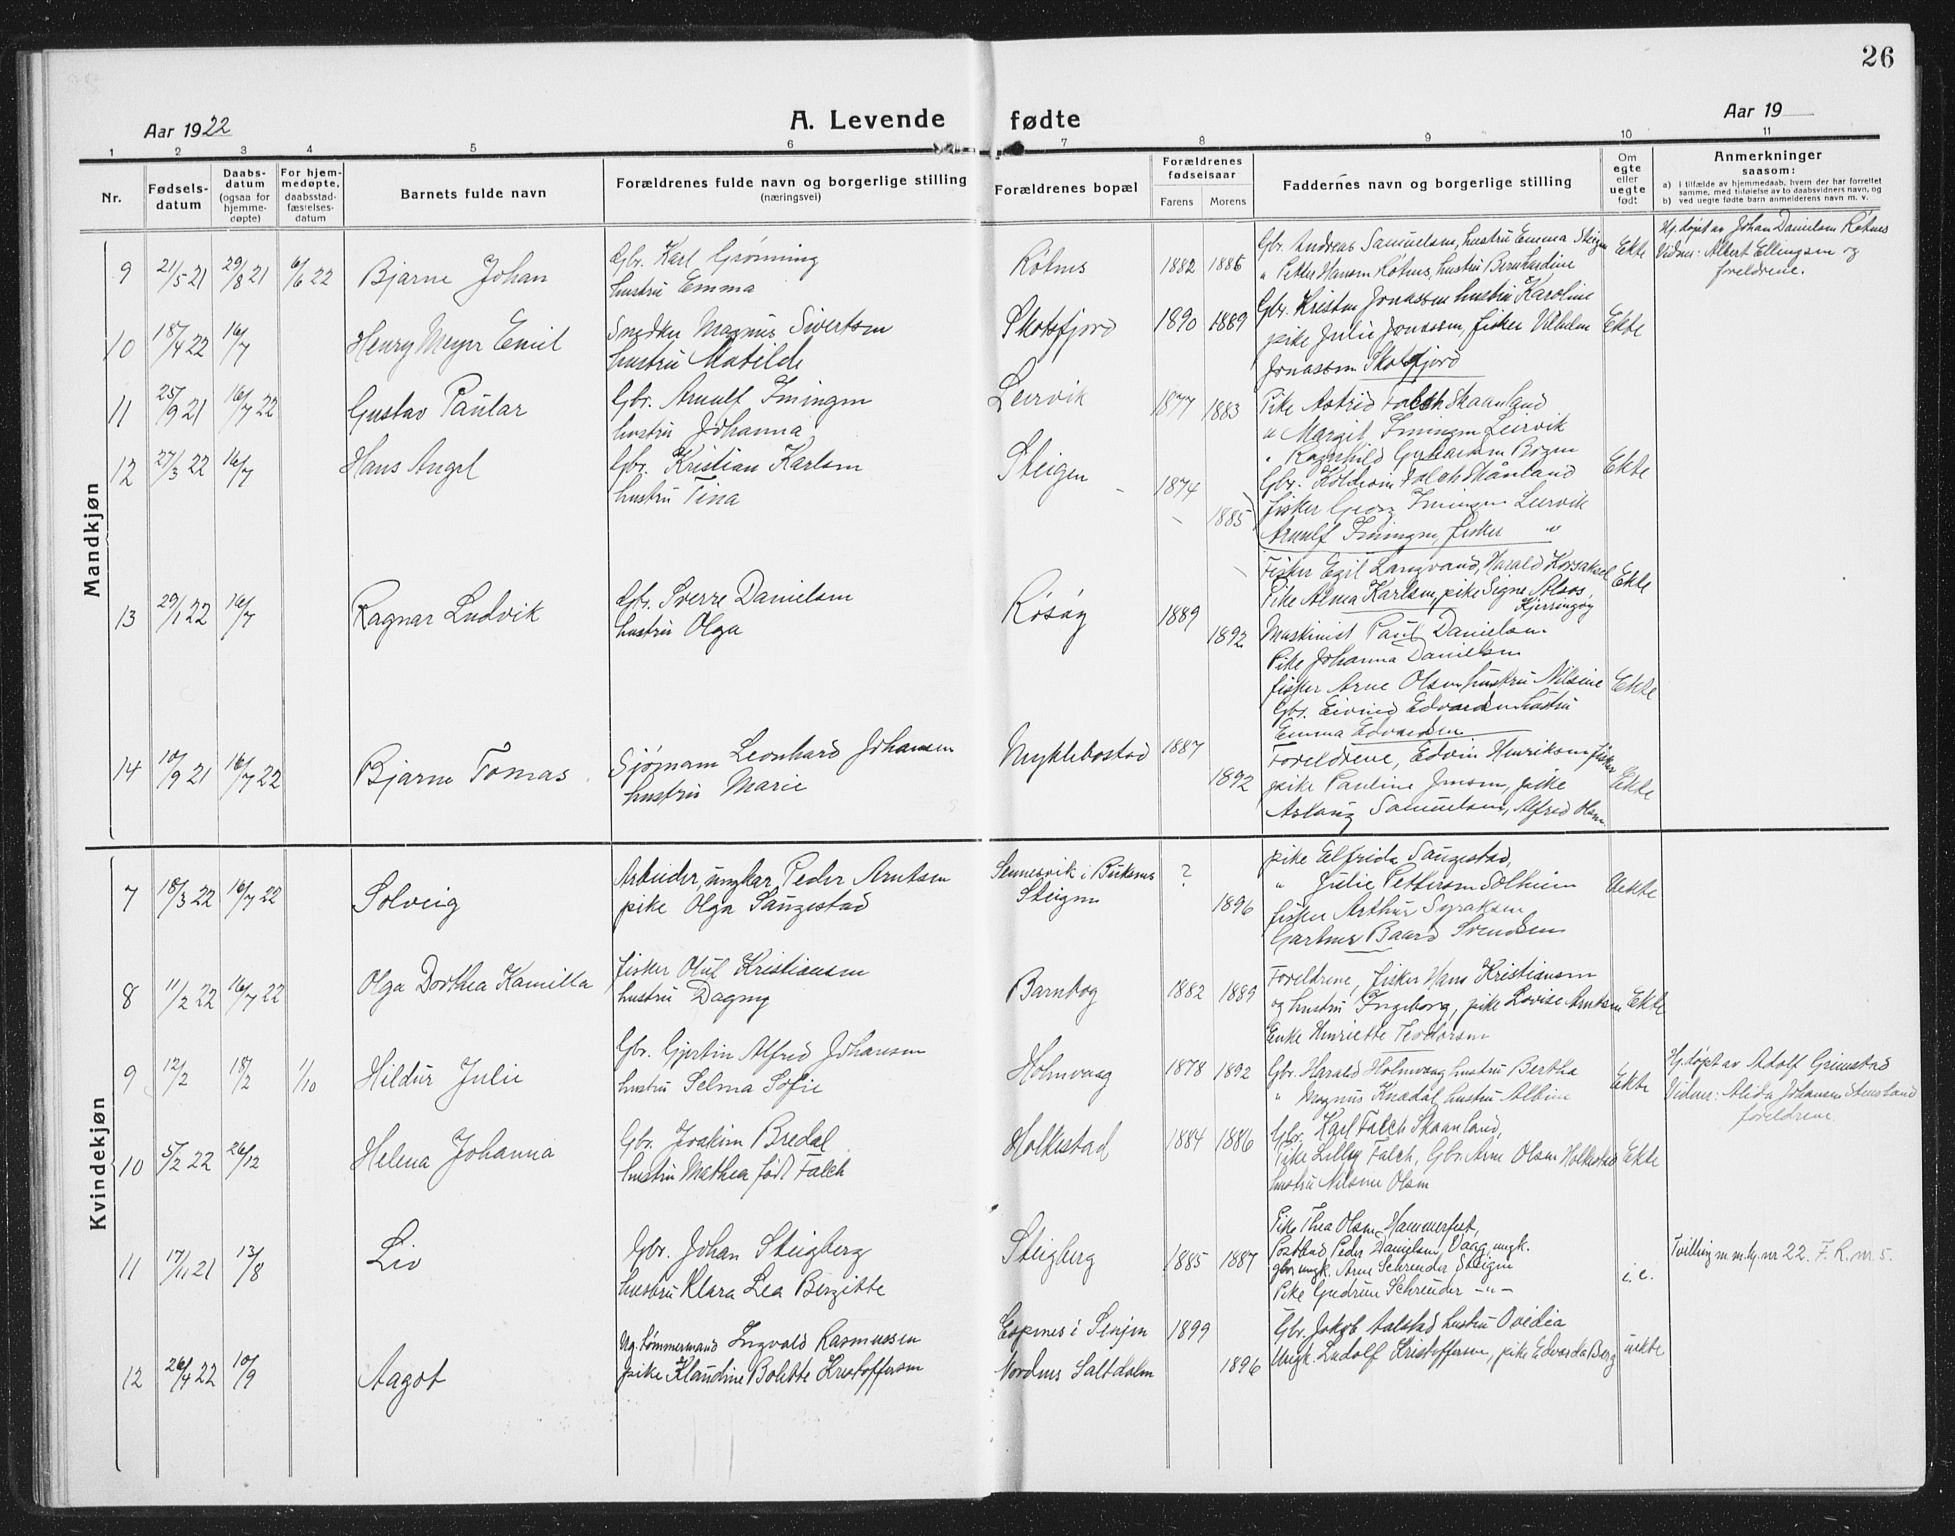 26
Aar 1922
A. Levende fødte
Aar 19
1 2 3 4 5 6 7 8 9 10 11
Nr.
Fødsels-
datum
Daabs-
datum
(ogsaa for
hjemme-
døpte)
For hjem-
medøpte,
daabsstad-
fæstelses-
datum
Barnets fulde navn
Forældrenes fulde navn og borgerlige stilling
(næringsvei)
Forældrenes bopæl
Forældrenes
fødselsaar
Farens Morens
Faddernes navn og borgerlige stilling
Om
egte
eller
uegte
født
Anmerkninger
saasom:
a) I tilfælde av hjemmedaab, hvem der har forrettet
samme, med tilføielse av to daabsvidners navn, og
b) ved uegte fødte barn anmelderens navn m. v.
Mandkjøn
9 21/5 21 29/8 21 6/6 22 Bjarne Johan
Gbr. Karl Grønning
hustru Emma
Røtnes 1882 1886
Gbr. Andreas Samuelsen, hustru Emma Steigen
" Petter Hansen Røtnes, hustru Bernhardine
Ekte
Hj.døpt av Johan Danielsen Røtnes
Vidner: Albert Ellingsen og
foreldrene.
10 18/4 22 16/7 Henry Meyer Emil
Snedker Magnus Sivertsen
hustru Matilde
Skotsfjord 1890 1889
Gbr. Kristen Jonassen hustru Karoline
pike Julie Jonassen, fisker Vilhelm
Jonassen Skotsfjord
Ekte
11 25/9 21 16/7 22 Gustav Paular
Gbr. Arnulf Iningen
hustru Johanna
Leirvik 1877 1883
Pike Astrid Falch Skaanland
" Margit Iningen Leirvik
" Ragnhild Bogen
Gbr. Falch Skånland
fisker Georg Iningen Leirvik
Arnulf Iningen, fisker "
Ekte
12 27/3 22 16/7 Hans Angel
Gbr. Kristian Karlsen
hustru Tina
Steigen 1874 1885
Fisker Egil Langvand, Harald Korsaksel
Pike Alma Karlsen, pike Signe Alsos,
Kjerringøy
Ekte
13 29/1 22 16/7 Ragnar Ludvik
Gbr. Sverre Danielsen
hustru Olga
Røsøy 1889 1892
Maskinist Paul Danielsen
Pike Johanna Danielsen
fisker Arne Olsen hustru Nilsine
Gbr. Eivind Edvardsen hustru
Emma Edvardsen
Ekte
14 10/9 21 16/7 22 Bjarne Tomas
Sjømann Leonhard Johansen
hustru Marie
Myklebostad 1887 1892
Foreldrene, Edvin Henriksen fisker
pike Pauline Jensen, pike
Aslaug Samuelsen, Alfred Olsen
Ekte
Kvindekjøn
7 18/3 22 16/7 22 Solveig
Arbeider, ungkar Peder Arntsen
pike Olga Saugestad
Sennesvik i Buksnes
Steigen
? 1896
pike Elfrida Saugestad,
" Julie Pettersen Solheim
fisker Arthur Syraksen
Gartner Baard Svendsen
Uekte
8 11/2 22 16/7 22 Olga Dorthea Kamilla
fisker Oluf Kristiansen
hustru Dagny
Barnkog 1882 1889
Foreldrene, fisker Hans Kristiansen
og hustru Ingeborg, pike Lovise Arntsen
Enke Henriette Teodorsen
Ekte
9 12/2 18/2 1/10 Hildur Julie
Gbr. Gjertin Alfred Johansen
hustru Selma Sofie
Holmvaag 1878 1892
Gbr. Harald Holmvaag hustru Bertha
" Magnus Knædal hustru Albine
Ekte
Hj.døpt av Adolf Grimstad
Vidner: Alida Johansen Stensland
foreldrene
10 5/2 22 26/12 Helena Johanna
Gbr. Joakim Bredal
hustru Mathea født Falch
Holkestad 1884 1886
Gbr. Karl Falch Skaanland,
Pike Lilly Falch, Gbr. Arne Olsen Holkestad
hustru Nilsine Olsen
Ekte
11 17/11 21 13/8 Liv
Gbr. Johan Steigberg
hustru Klara Lea Bergitte
Steigberg 1885 1887
Pike Thea Olsen, Hammerfest,
Postbud Peder Danielsen, Vaag, ungk.
gbr. ungk. Arne Schreuder Steigen
Pike Gudrun Schreuder -"-
i.e.
Tvilling m m.kj. nr 22. F.R. nr. 5.
12 26/4 22 10/9 Aagot
Ug. tømmermand Ingvald Rasmussen
pike Klaudine Bolette Kristoffersen
Espenes i Senjen
Nordnes Saltdalen
1899 1896
Gbr. Jakob Aalstad hustru Ovidia
Ungk. Ludolf Kristoffersen, pike Edvarda Berg
uekte